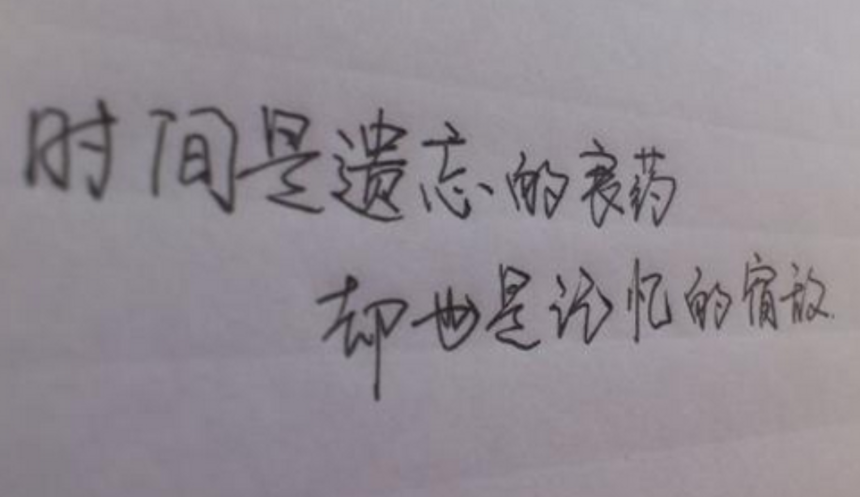 时间是遗忘的衰药
却也是记忆的宿敌